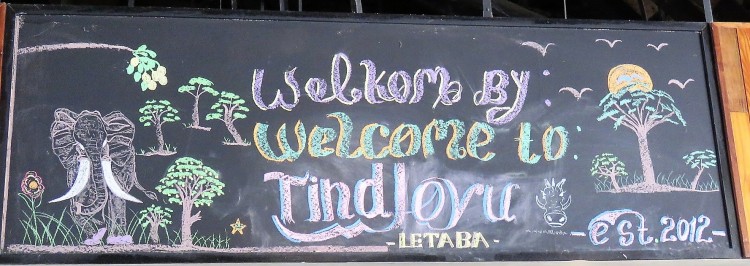 Welkom By:
Welcome to:
Tindlovu
- LETABA -
- est. 2012 -